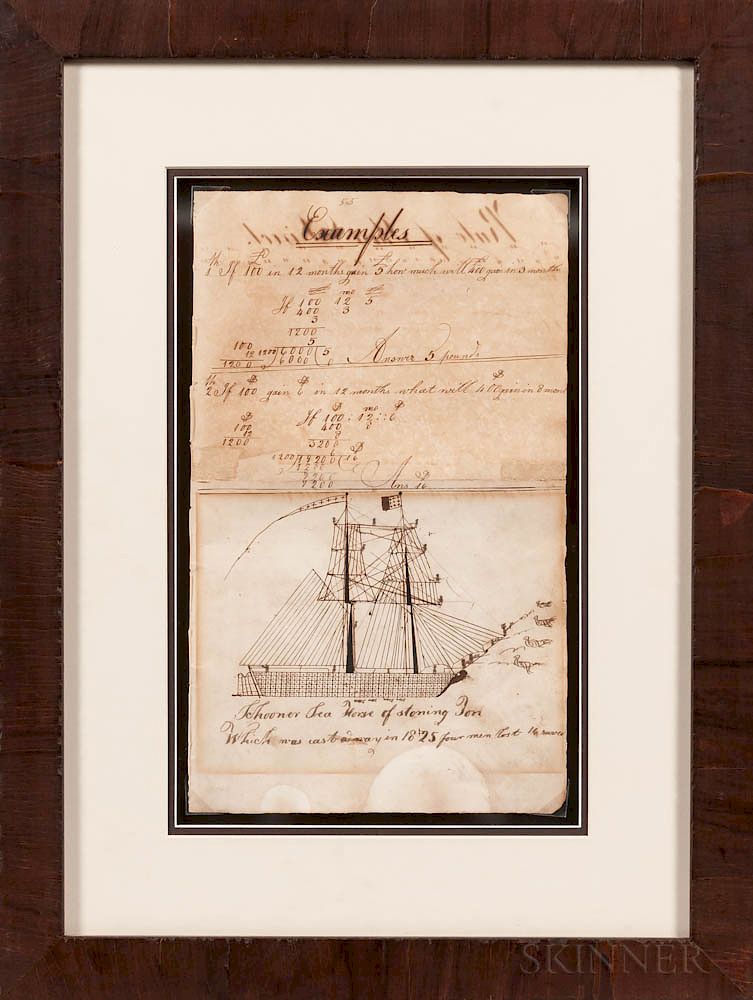 53
Examples
1 If 100 in 12 months gain 5 how much will 400 gain in 3 months
mo
If 100 12 5
400 3
3
1200
5
100
12 1200)6000(5
1200 6000 0 Answer 5 pounds
2 If 100 gain 6 in 12 months what will 400 gain in 8 mon
mo
If 100 : 12 :: 6
100 400 8
12 8
1200 3200
6
1200)19200(16
7200
7200
Ans 16
Schooner Sea Horse of stoning Ton
Which was cast away in 1825 four men lost 16 saved
SKINNER